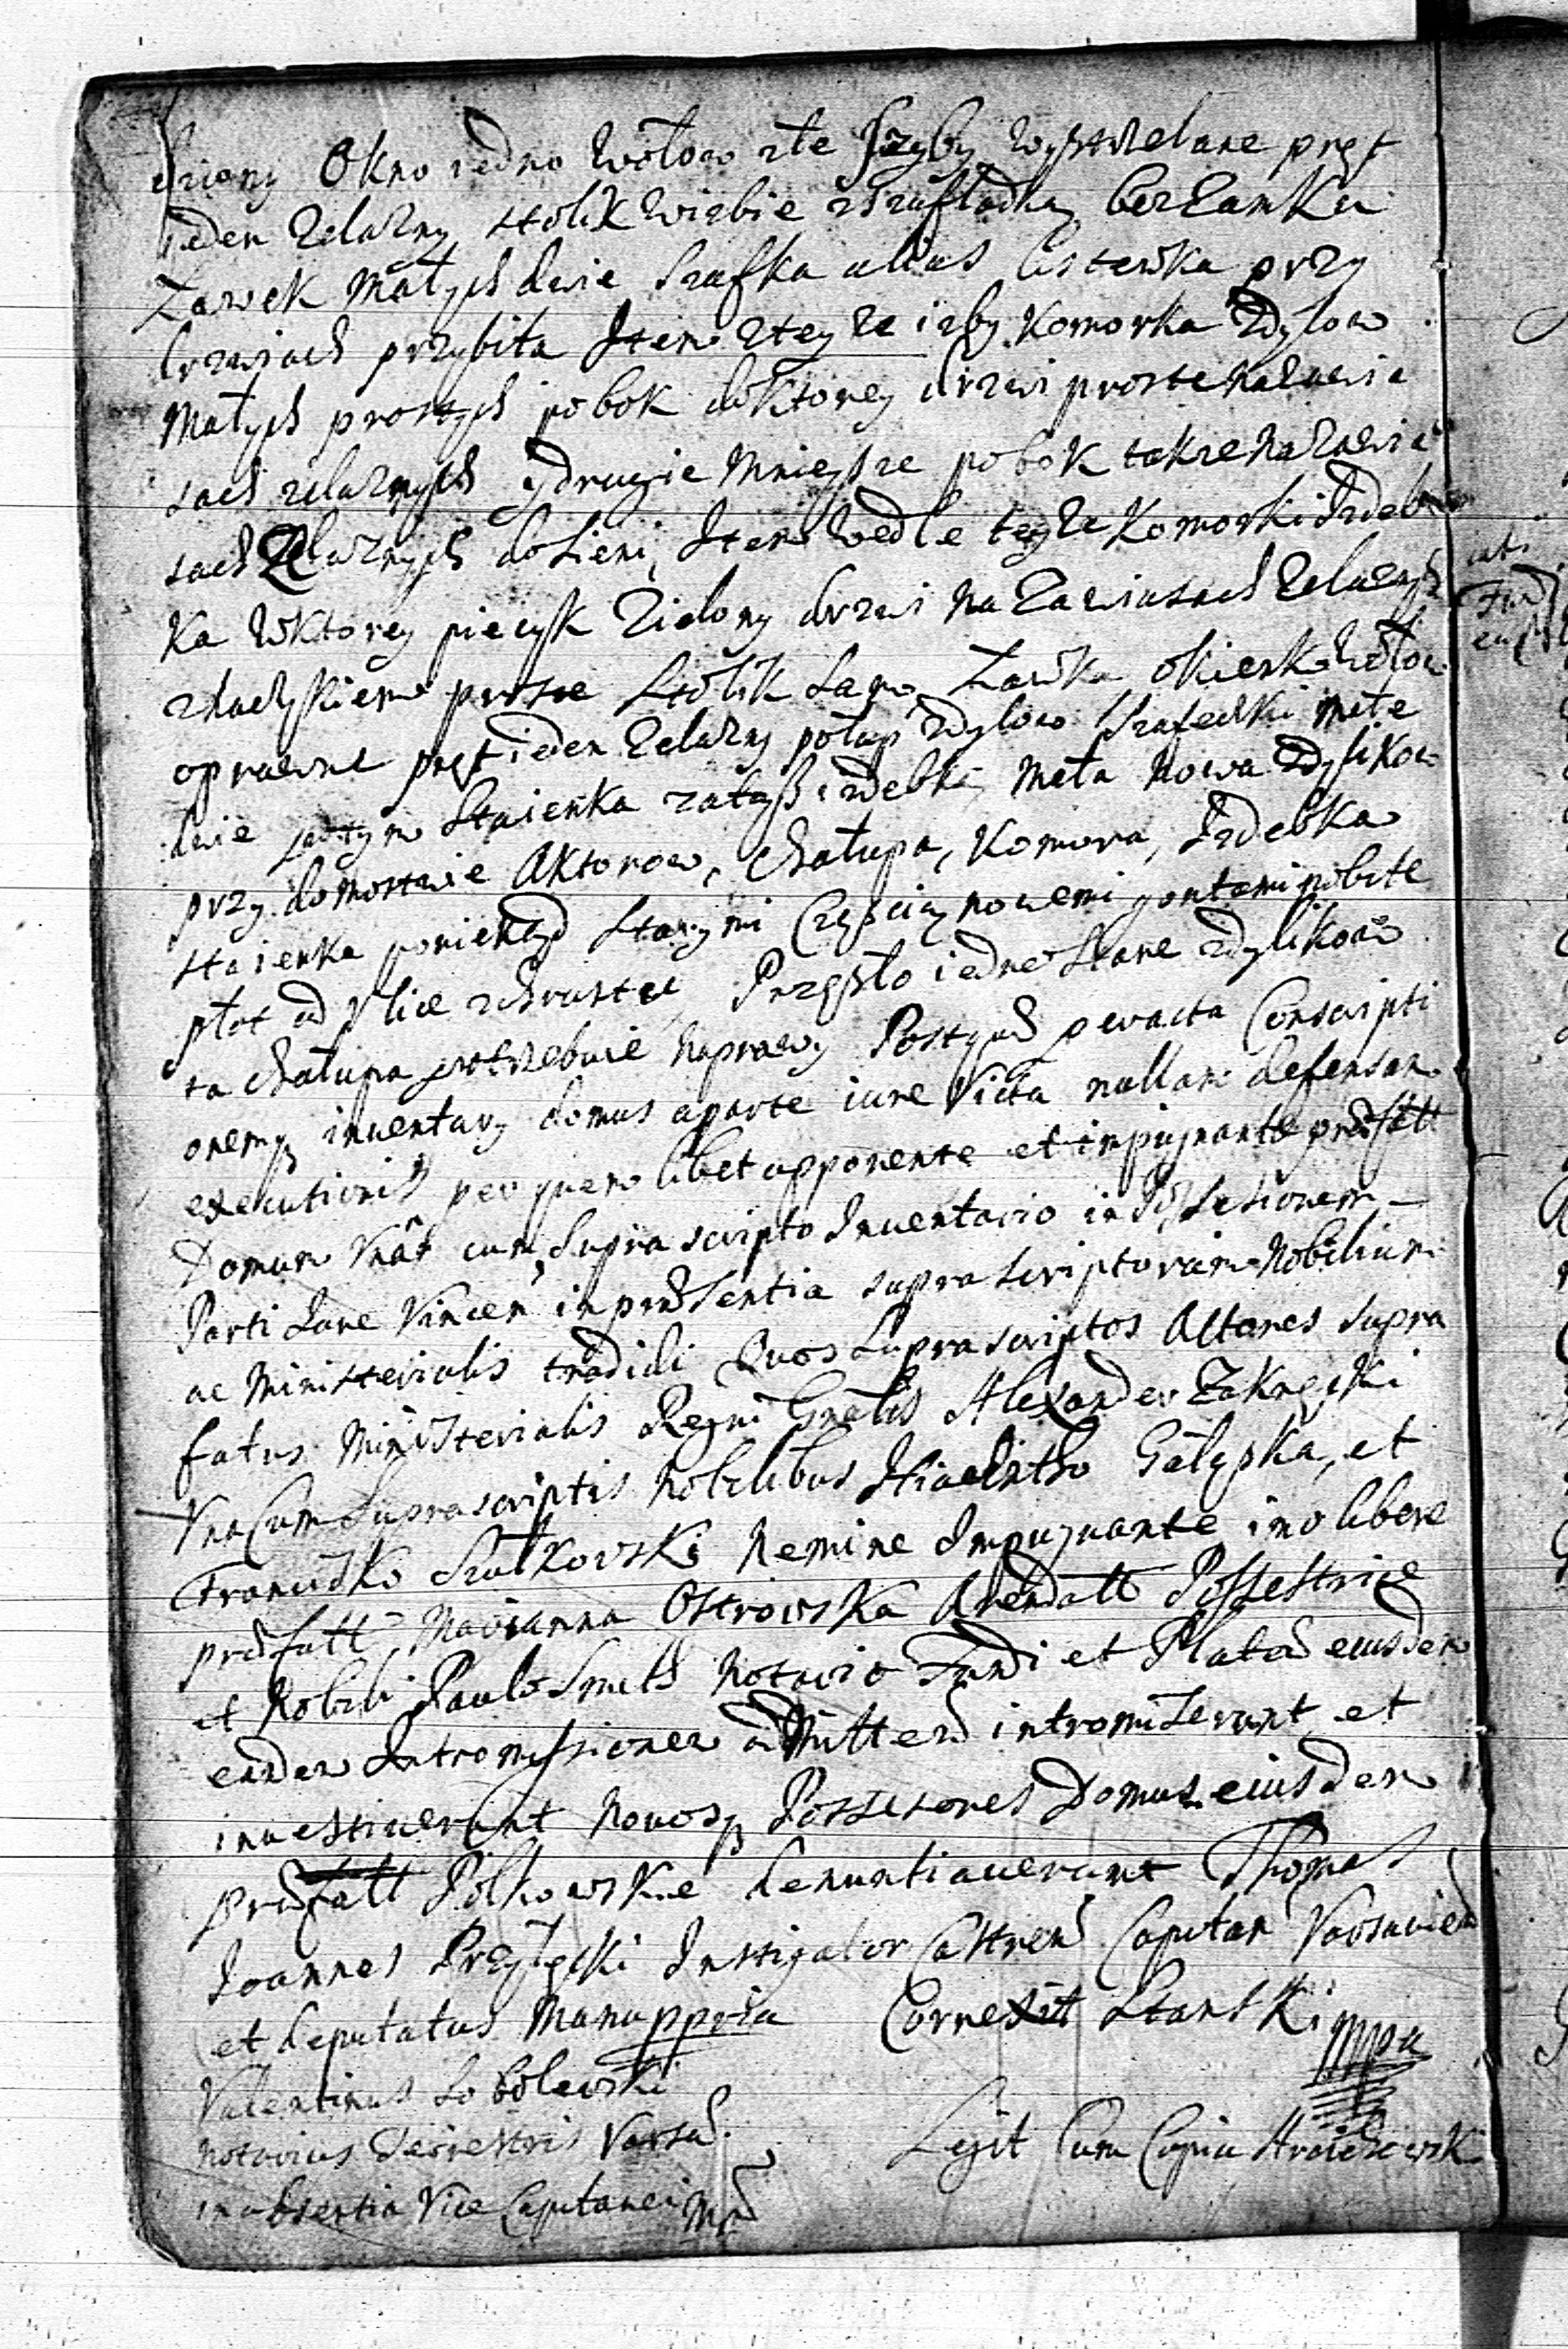 Okno iedno wołow złe Szyby wystrzelane pręt
ieden zelazny stolik wizbie zszufladką bez Zamku
Ławek małych dwie Szafka alias listewka przy
drzwiach przybita Item zteyże izby Komorka zdylow
małych prostych pobok doktorey drzwi proste nazawia
sach zelaznych ydrugie mnieysze pobok takze nazawia
sach Zelaznych dosieni, Item wedle teyże Komorki Izdeb
ka wktorey piecyk Zielony drzwi na Zawiasach Zelaznych
proste Stolik Sam, Ławka okienko wołow
oprawne pręt ieden Zelazny połap zdylow Szafeczki małe
dwie Staienka zatyß izdebki mała nowa zdylikow
przy domostwie Aktorow, Chałupa, Komora, Izdebka
staienka poniekąd starymi Częścią nowemi gontami pobite
płot od Ulice zchrustu, Przęsło iedne Stare zdylikow
ta chałupa potrzebuie naprawy Postquod peracta Conscripti
onemq inventary domus aparte iure Victa nullam defensam
executionis per quemlibet opponente et impugnante præfatt
Domum Unat cum Supra scripto Inventario in Possessionem
Parti Iure Vincen in præsentia supra scriptorum Nobilium
ac Ministerialis tradidi Quos Supra scriptos Actores supra
fatus Ministerialis Regni Gnalis Alexander Zakrzęcki
Una Cum Supra scriptis Nobilibus Hiacintho Gałęska, et
Francisko Szułkowski Nemine Impugnante imo libere
præfatt Marianna Ostrowska Arendatt Possestrice
et Nobili Paulo Smith Notario Fundi et Platea eiusdem
eandem Intromissionem admitten intromiserunt et
investiverunt Novosq Possessores Domus eiusdem
præfatt Polkowskie denuntiaverunt Thomas
Joannes Przyłęcki Instigator Castren Capitan Varsavien
et deputatus Manuppria Correxit Stanski mpa
Valentinus Sobolewski
Notarius Terrestris Varsa
in absentia Vice Capitanei Mp
Legit Cum Copia